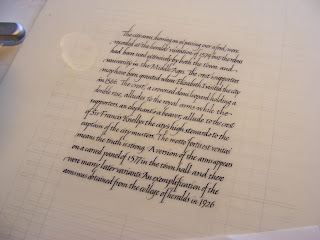 The city arms, showing an ox passing over a ford, were
recorded at the herald's visitation of 1574 but the ox
had been used extensively by both the town and
university in the Middle Ages. The crest & supporters
may have been granted when Elizabeth I visited the city
in 1566. The crest, a crowned demi leopard holding a
double rose, alludes to the royal arms while the
supporters, an elephant & a beaver, allude to the crest
of Sir Francis Knollys the city's high steward & to the
captain of the city muster. The motto 'fortis est veritas'
means the truth is strong. A version of the arms appears
on a carved panel of 1577 in the town hall and there
were many later variants. An exemplification of the
arms was obtained from the college of heralds in 1926